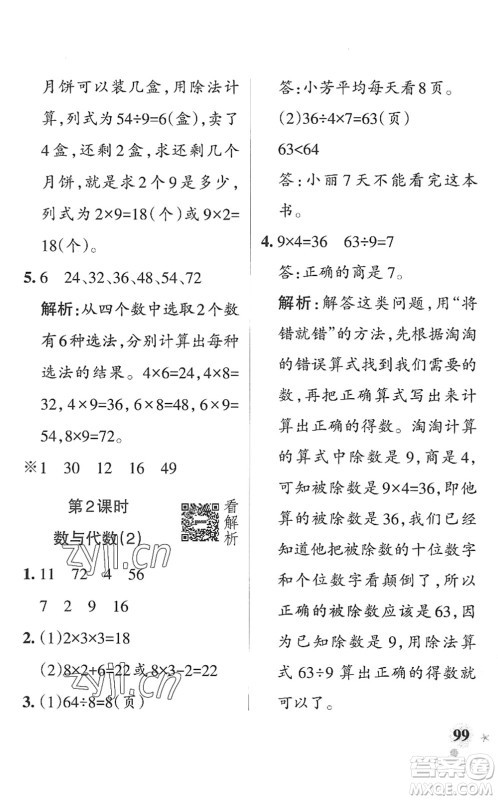 月饼可以装几盒,用除法计
算,列式为54÷9=6(盒),卖了
4盒,还剩2盒,求还剩几个
月饼,就是求2个9是多少,
列式为2×9=18(个)或9×2=
18(个)。
5.6 24、32、36、48、54、72
解析:从四个数中选取2个数
有6种选法,分别计算出每种
选法的结果。4×6=24,4×8=
32,4×9=36,6×8=48,6×9=
54,8×9=72。
※1 30 12 16 49
第2课时
数与代数(2)
看
解
析
1.11 72 4 56
7 2 9 16
2.(1)2×3×3=18
(2)8×2+6=22或8×3-2=22
3.(1)64÷8=8(页)
答:小芳平均每天看8页。
(2)36÷4×7=63(页)
63<64
答:小丽7天不能看完这本
书。
4.9×4=36 63÷9=7
答:正确的商是7。
解析:解答这类问题,用“将
错就错”的方法,先根据淘淘
的错误算式找到我们需要的
数,再把正确算式写出来计
算出正确的得数。淘淘计算
的算式中除数是9,商是4,
可以推算出他所计算的算式
的被除数是9×4=36,即他
误认为被除数是36,但是因
为他是将被除数的十位数字
和个位数字看颠倒了,所以
正确的被除数应该是63,正
确的除数是9,用除法算式
63÷9计算出正确的得数就可
以了。
99
zyjl.cn
zyjl.cn
作业精灵
MXQE.COM